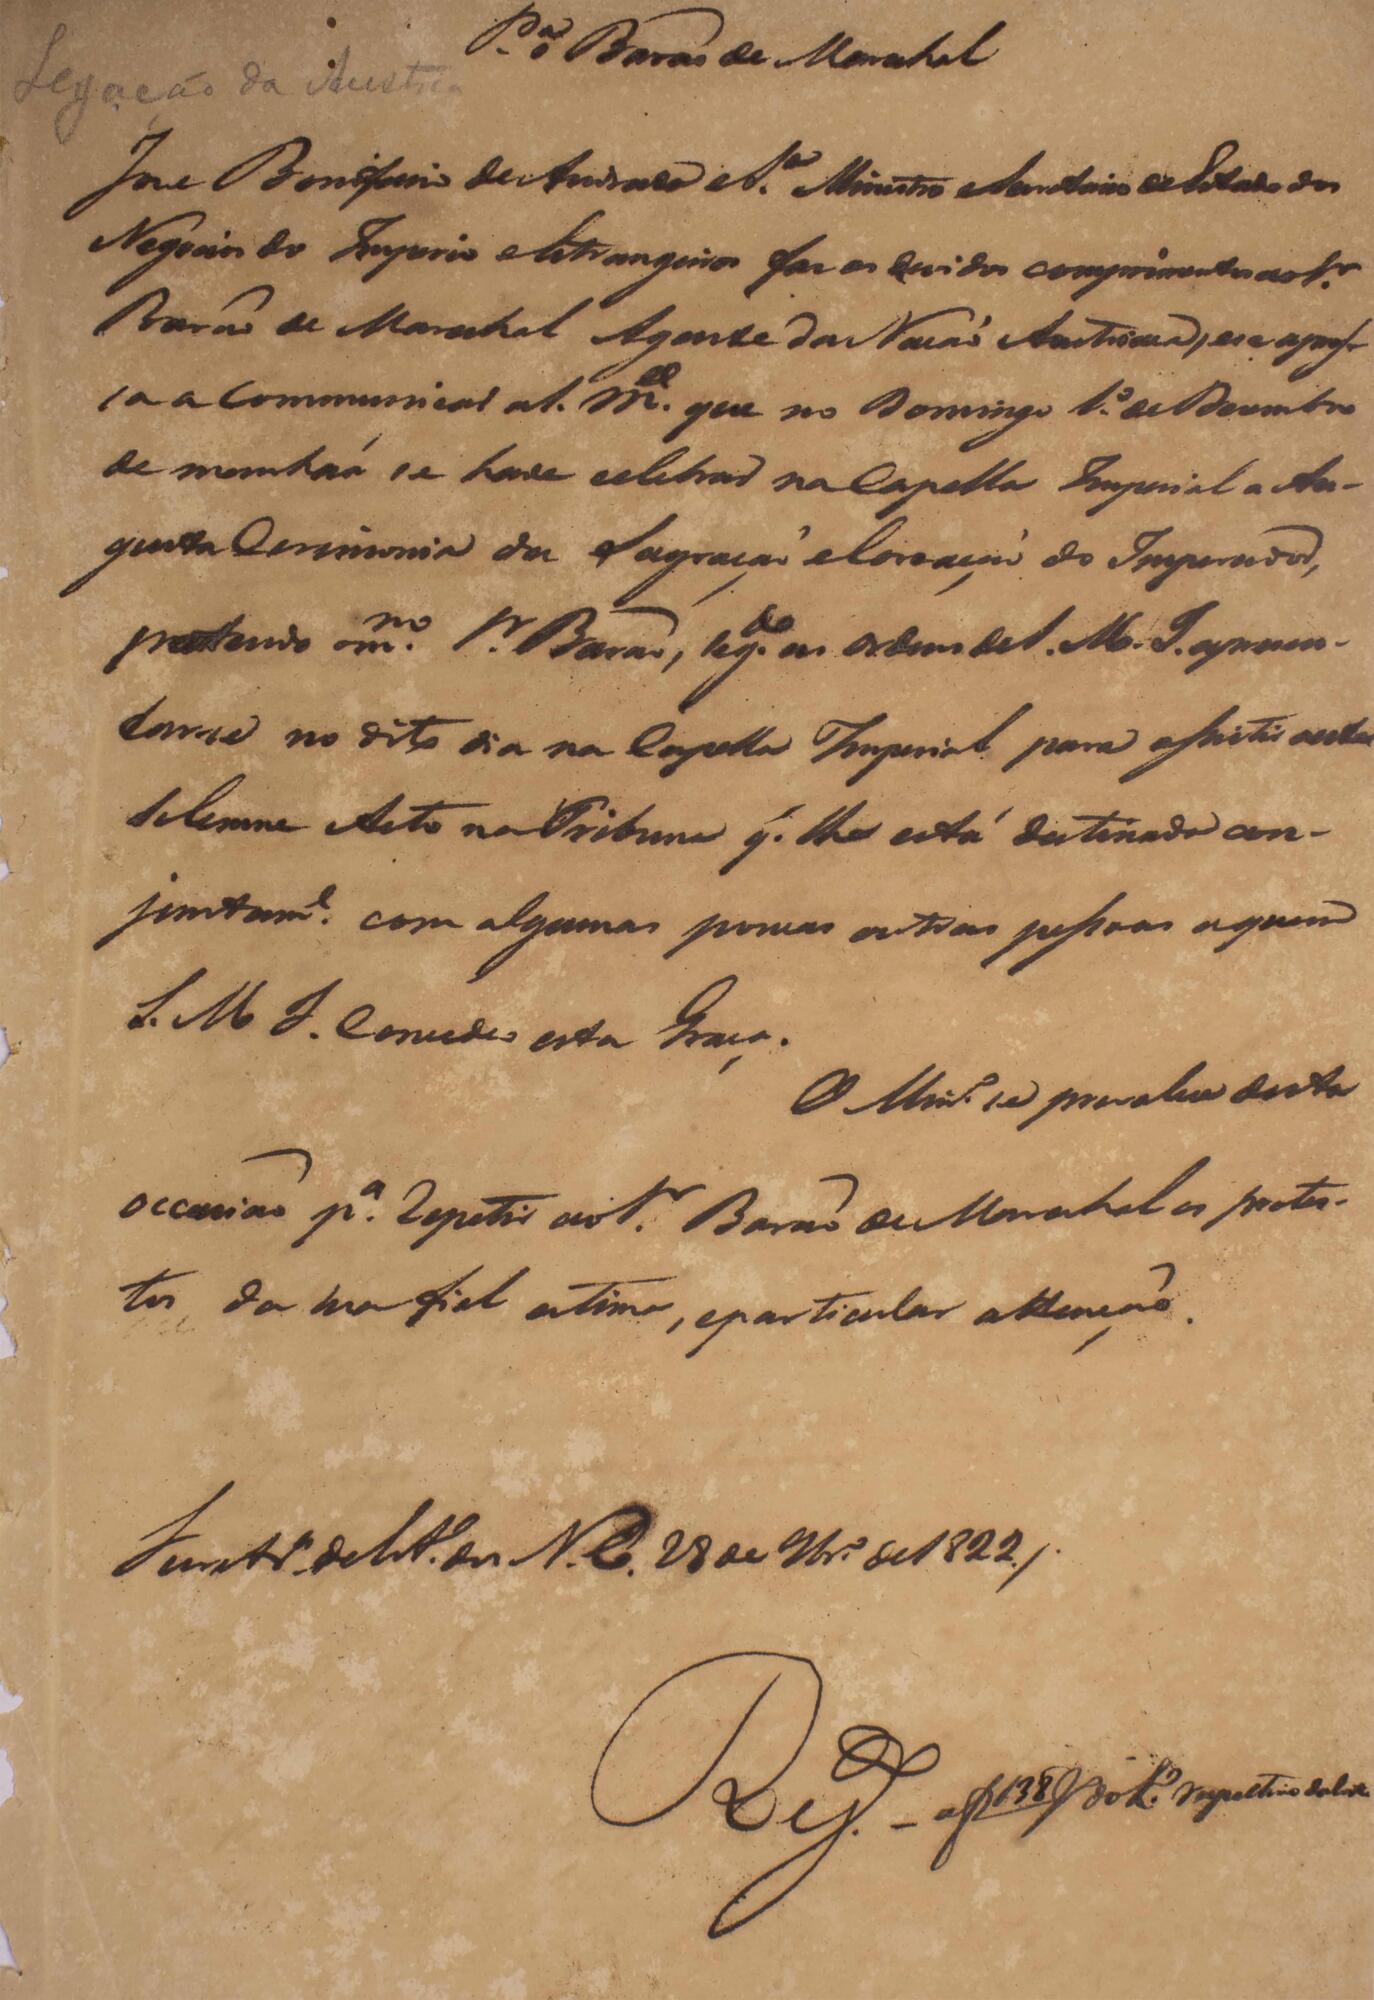 P.ª o Barão de Mareschal
Legação da Austria
Joze Bonifacio de Andrada e S.ª Ministro e Secretario de Estado dos
Negocios do Imperio e Estrangeiros faz os devidos comprimentos ao Sr.
Barão de Mareschal Agente da Nação Austriaca, e se apres-
sa a communicar a S. M.ce que no Domingo 1.º de Dezembro
de menhaã se hade celebrar na Capella Imperial a Au-
gusta Cerimonia da Sagração e Coroação do Imperador,
podendo o m.mo Sr. Barão, seg.do as ordens de S. M. I. aprezen-
tar-se no dito dia na Capella Imperial para assistir a este
solemne Acto na Tribuna q. lhe está destinada con-
juntam.e com algumas poucas outras pessoas a quem
S. M. I. Concedeo esta Graça.
O Min.º se prevalece desta
occazião p.ª repetir ao Sr. Barão de Mareschal os protes-
tos da sua fiel estima, e particular attenção.
Secretr.ª de Est.º dos N. E. 28 de 9br.º de 1822./.
Reg. - a f 138 do L.º respectivo